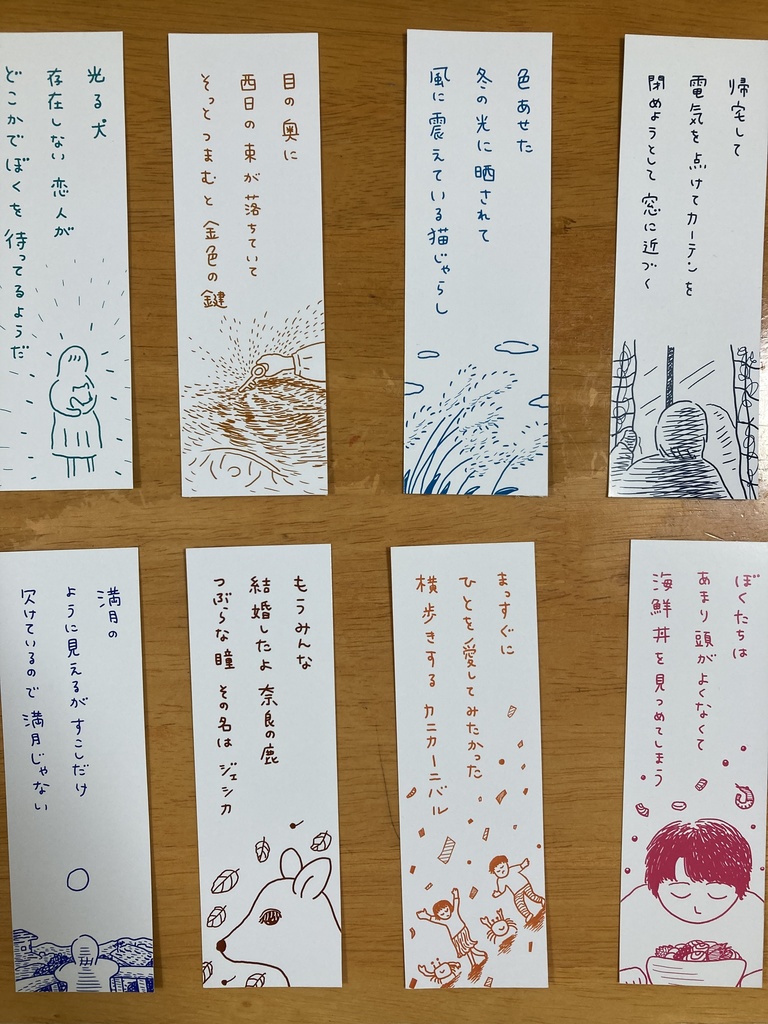 帰宅して
電気を点けてカーテンを
閉めようとして窓に近づく
色あせた
冬の光に晒されて
風に震えている猫じゃらし
目の奥に
西日の束が落ちていて
そっとつまむと金色の鍵
光る犬
存在しない恋人が
どこかでぼくを待ってるようだ
ぼくたちは
あまり頭がよくなくて
海鮮丼を見つめてしまう
まっすぐに
ひとを愛してみたかった
横歩きする カニカーニバル
もうみんな
結婚したよ 奈良の鹿
つぶらな瞳 その名は ジェシカ
満月の
ように見えるが すこしだけ
欠けているので 満月じゃない